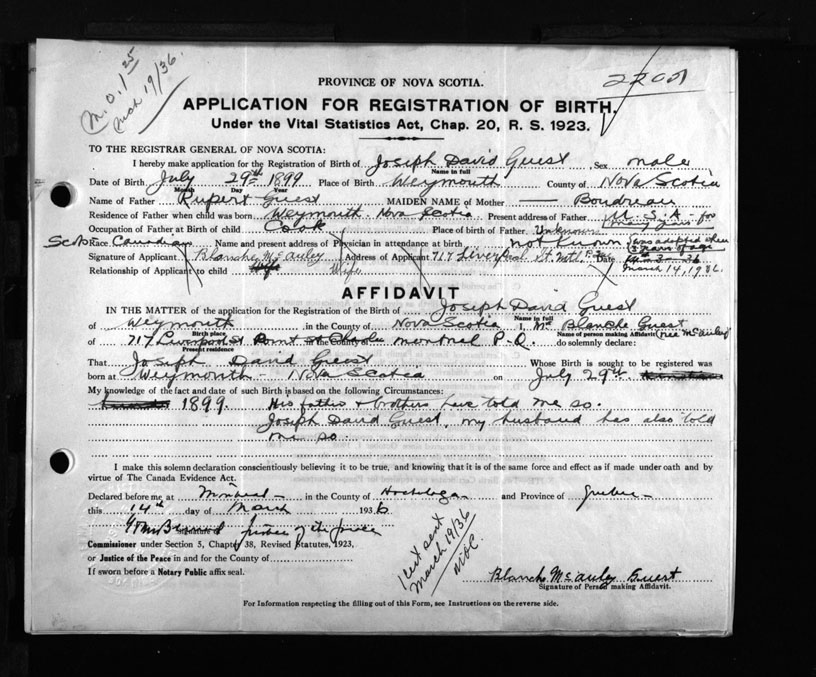 M.O. 1 25
March 19/36.
22001
PROVINCE OF NOVA SCOTIA.
APPLICATION FOR REGISTRATION OF BIRTH.
Under the Vital Statistics Act, Chap. 20, R. S. 1923.
TO THE REGISTRAR GENERAL OF NOVA SCOTIA:
I hereby make application for the Registration of Birth of Joseph David Guest Sex male
Name in full
Date of Birth July 29th 1899 Place of Birth Weymouth County of Nova Scotia
Month Day Year
Name of Father Rupert Guest MAIDEN NAME of Mother — Boudreau
Residence of Father when child was born Weymouth Nova Scotia Present address of Father U.S.A. for
Occupation of Father at Birth of child Cook Place of birth of Father Unknown
Scots Race Canadian Name and present address of Physician in attendance at birth not known (was adopted when 3 years of age
Signature of Applicant Blanche McAuley Address of Applicant 717 Liverpool St. Mtl. P.Q. Date 14-3-36
Relationship of Applicant to child Wife Wife March 14, 1936.
AFFIDAVIT
IN THE MATTER of the application for the Registration of the Birth of Joseph David Guest
Name in full
of Weymouth in the County of Nova Scotia I, Mrs Blanche Guest
Birth place Name of person making Affidavit (nee McAuley)
of 717 Liverpool St Point St Charles the County Montreal P.Q. do solemnly declare:
Present residence
That Joseph David Guest Whose Birth is sought to be registered was
born at Weymouth - Nova Scotia on July 29th
My knowledge of the fact and date of such Birth is based on the following Circumstances:
1899. His father & brothers have told me so.
Joseph David Guest, my husband has also told
me so.
I make this solemn declaration conscientiously believing it to be true, and knowing that it is of the same force and effect as if made under oath and by
virtue of The Canada Evidence Act.
Declared before me at Montreal in the County of Hochelaga and Province of Quebec
this 14th day of March 1936
justice of the peace
Signature
Commissioner under Section 5, Chapter 38, Revised Statutes, 1923,
or Justice of the Peace in and for the County of
If sworn before a Notary Public affix seal.
Cert sent
March 19/36
Blanche McAuley Guest
Signature of Person making Affidavit.
For Information respecting the filling out of this Form, see Instructions on the reverse side.